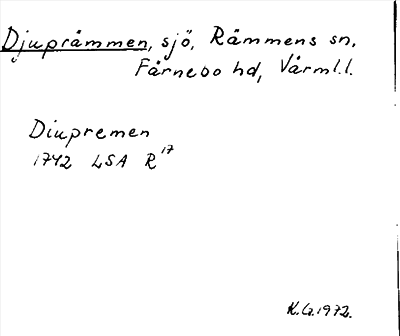 Djuprämmen, sjö, Rämmens sn,
Färnebo hd, Värml.l.
Diupremen
1742 LSA R¹⁷
K.G. 1972.